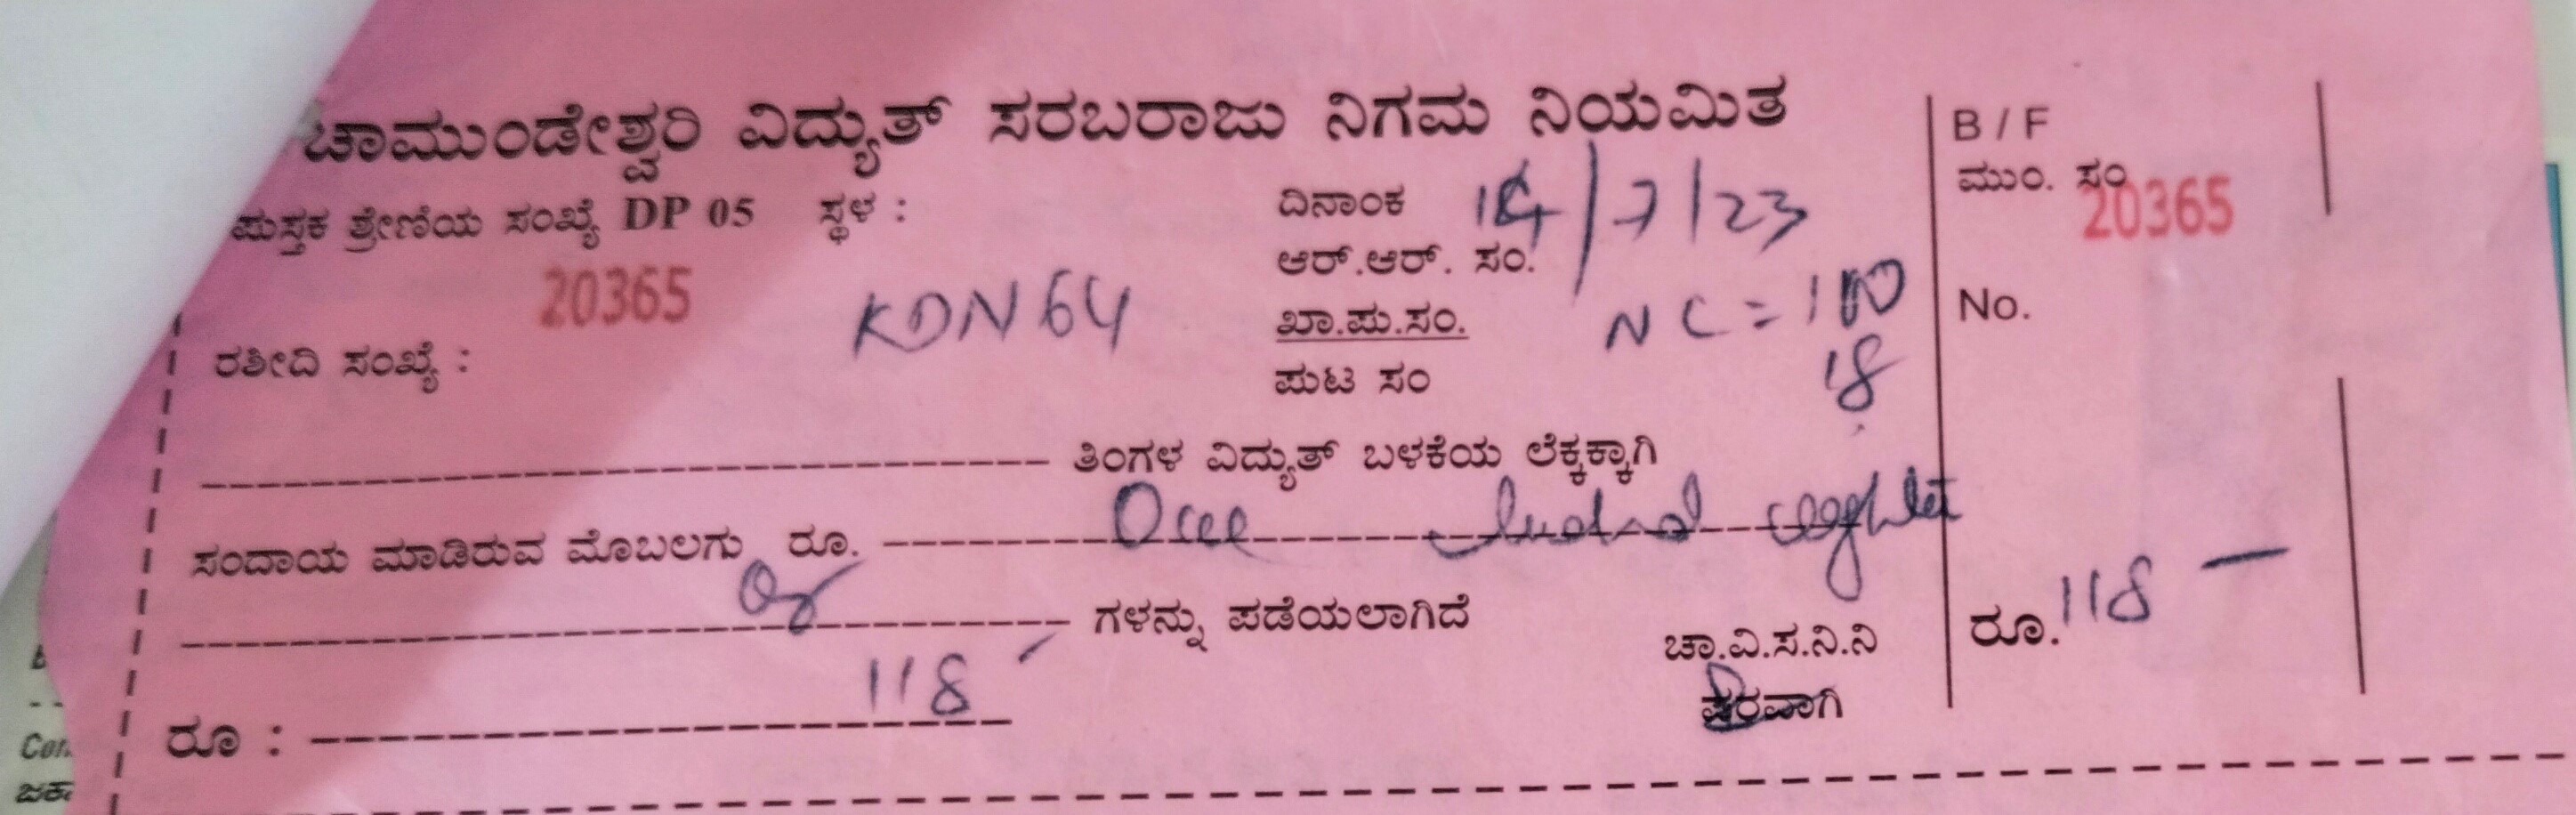 ಚಾಮುಂಡೇಶ್ವರಿ ವಿದ್ಯುತ್ ಸರಬರಾಜು ನಿಗಮ ನಿಯಮಿತ
ಪುಸ್ತಕ ಶ್ರೇಣಿಯ ಸಂಖ್ಯೆ DP 05 ಸ್ಥಳ :
ದಿನಾಂಕ 14/7/23
ಆರ್.ಆರ್. ಸಂ.
20365 KDN 64
ಖಾ.ಪು.ಸಂ. NC = 100
ರಶೀದಿ ಸಂಖ್ಯೆ :
ಪುಟ ಸಂ 18
ತಿಂಗಳ ವಿದ್ಯುತ್ ಬಳಕೆಯ ಲೆಕ್ಕಕ್ಕಾಗಿ
ಸಂದಾಯ ಮಾಡಿರುವ ಮೊಬಲಗು ರೂ. One
ಗಳನ್ನು ಪಡೆಯಲಾಗಿದೆ
ಚಾ.ವಿ.ಸ.ನಿ.ನಿ
ಪರವಾಗಿ
ರೂ : 118
B / F
ಮುಂ. ಸಂ
20365
No.
ರೂ. 118 —